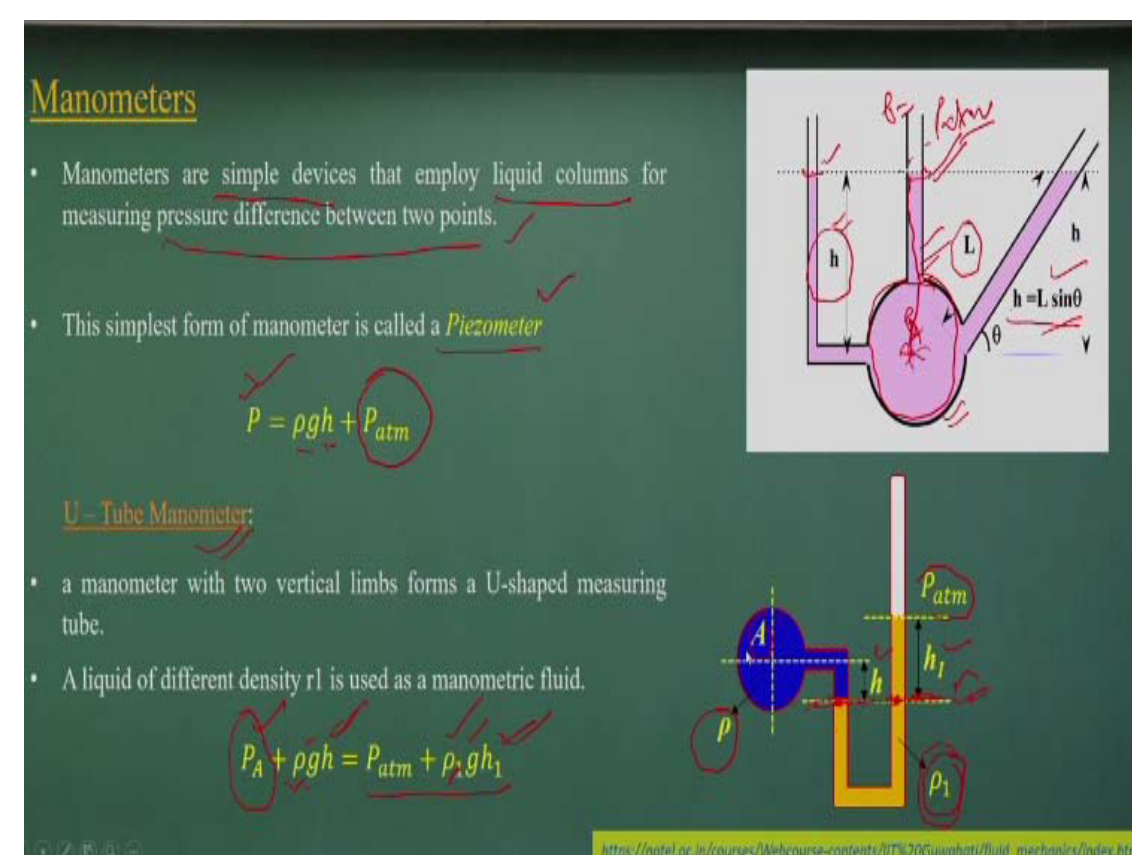 Manometers
• Manometers are simple devices that employ liquid columns for
measuring pressure difference between two points.
• This simplest form of manometer is called a Piezometer
P = ρgh + P_atm
U – Tube Manometer:
• a manometer with two vertical limbs forms a U-shaped measuring
tube.
• A liquid of different density r1 is used as a manometric fluid.
P_A + ρgh = P_atm + ρ₁gh₁
Patm
h
L
h
h =L sinθ
θ
A
P_atm
h₁
h
ρ
ρ₁
https://nptel.ac.in/courses/Webcourse-contents/IIT%20Guwahati/fluid_mechanics/index.htm